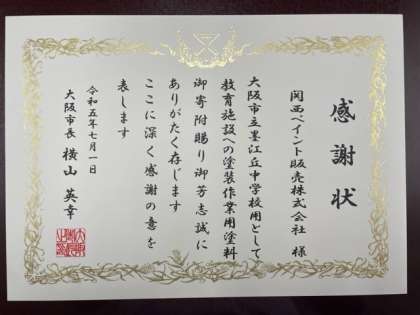 感謝状
関西ペイント販売株式会社 様
大阪市立墨江丘中学校用として
教育施設への塗装作業用塗料
御寄附賜り御芳志誠に
ありがたく存じます
ここに深く感謝の意を
表します
令和五年七月一日
大阪市長 横山英幸